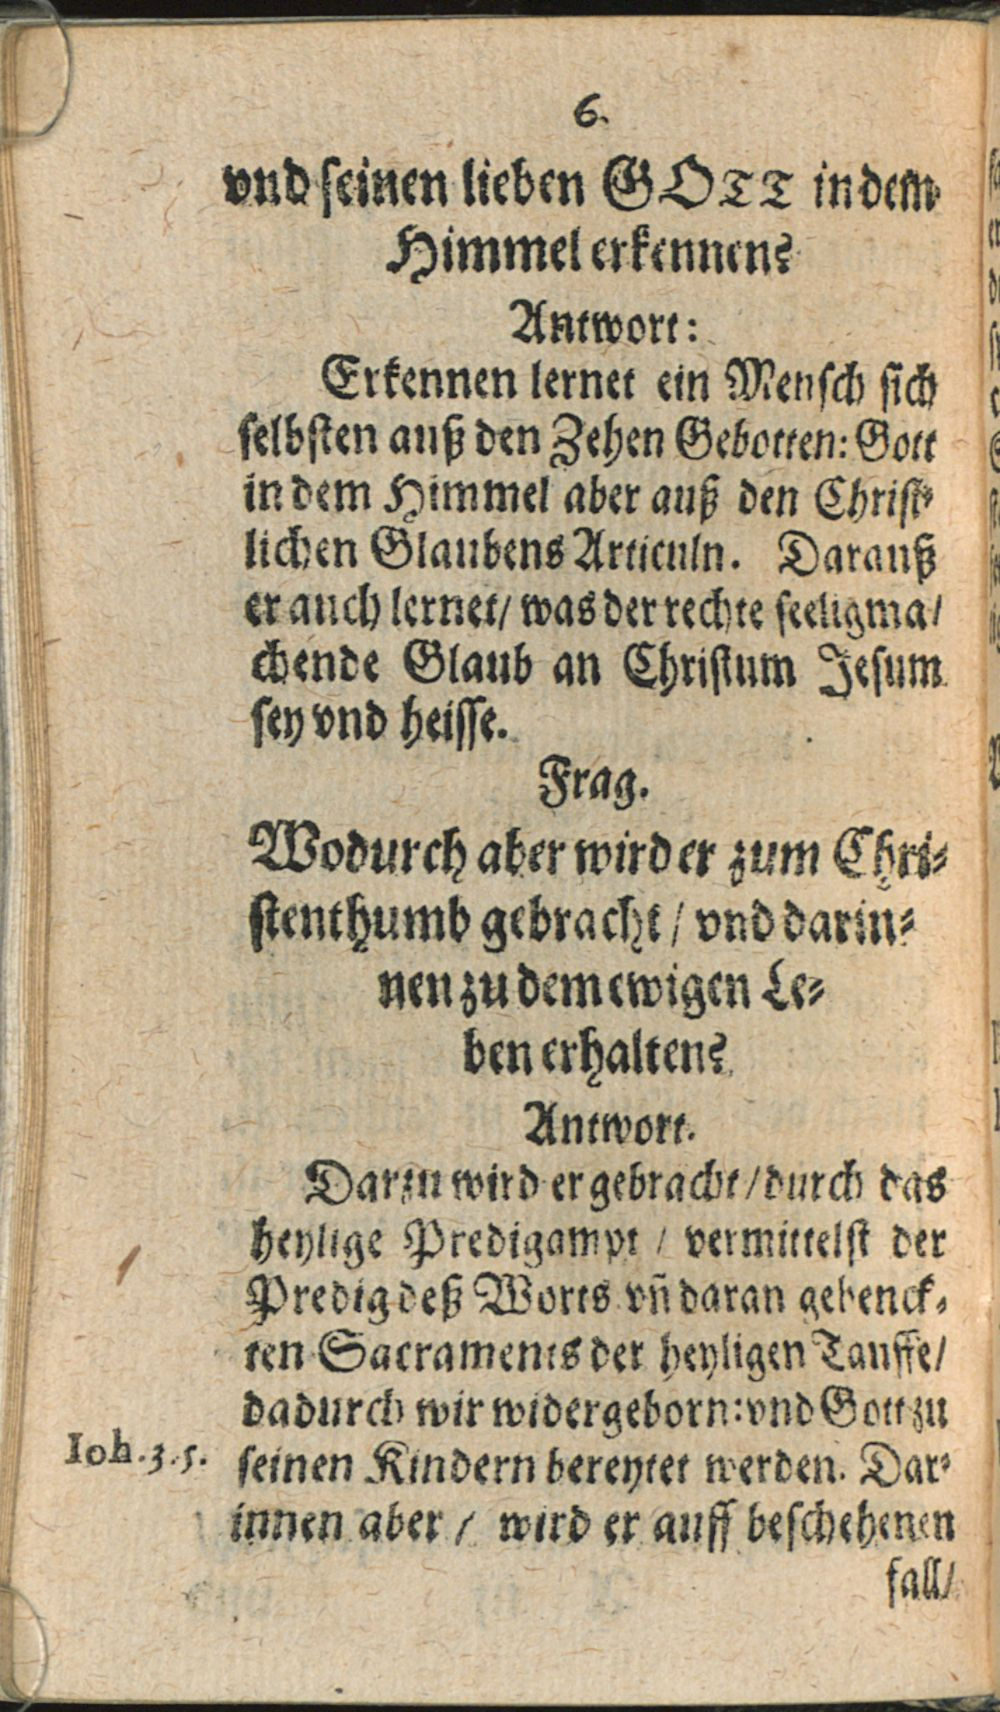 6.
vnd seinen lieben GOTT in dem
Himmel erkennen?
Antwort:
Erkennen lernet ein Mensch sich
selbsten auß den Zehen Gebotten: Gott
in dem Himmel aber auß den Christ⸗
lichen Glaubens Articuln. Darauß
er auch lernet/ was der rechte seeligma/
chende Glaub an Christum Jesum
sey vnd heisse.
Frag.
Wodurch aber wird er zum Chri⸗
stenthumb gebracht / vnd darin⸗
nen zu dem ewigen Le⸗
ben erhalten?
Antwort.
Darzu wird er gebracht/durch das
heylige Predigampt / vermittelst der
Predig deß Worts vñ daran gehenck⸗
ten Sacraments der heyligen Tauffe/
dadurch wir widergeborn: vnd Gott zu
Ioh. 3. 5. seinen Kindern bereytet werden. Dar⸗
innen aber / wird er auff beschehenen
fall/